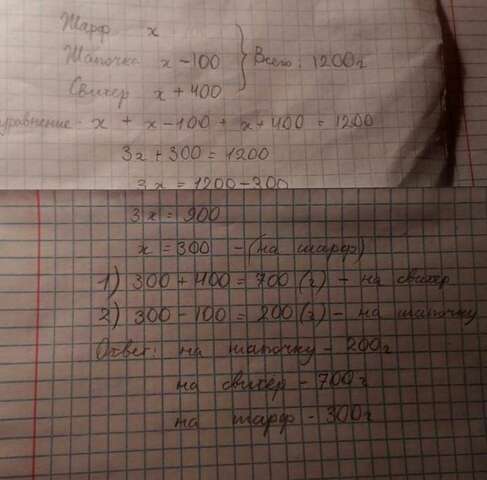 Шарф x
Шапочка x - 100
Свитер x + 400
Всего: 1200г
уравнение - x + x - 100 + x + 400 = 1200
3x + 300 = 1200
3x = 1200 - 300
3x = 900
x = 300 - (на шарф)
1) 300 + 400 = 700 (г) - на свитер
2) 300 - 100 = 200 (г) - на шапочку
Ответ: на шапочку - 200г
на свитер - 700г
на шарф - 300г